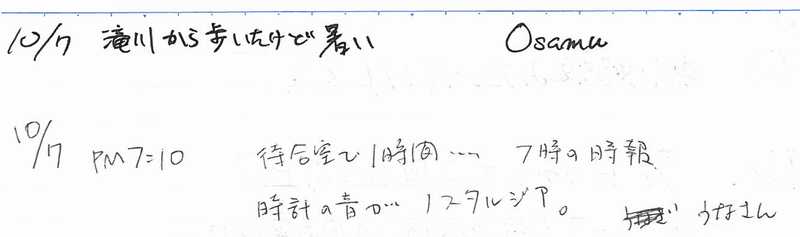 10/7 滝川から歩いたけど暑い Osamu
10/7 PM7:10 待合室で1時間… 7時の時報
時計の音がノスタルジア。 うなさん